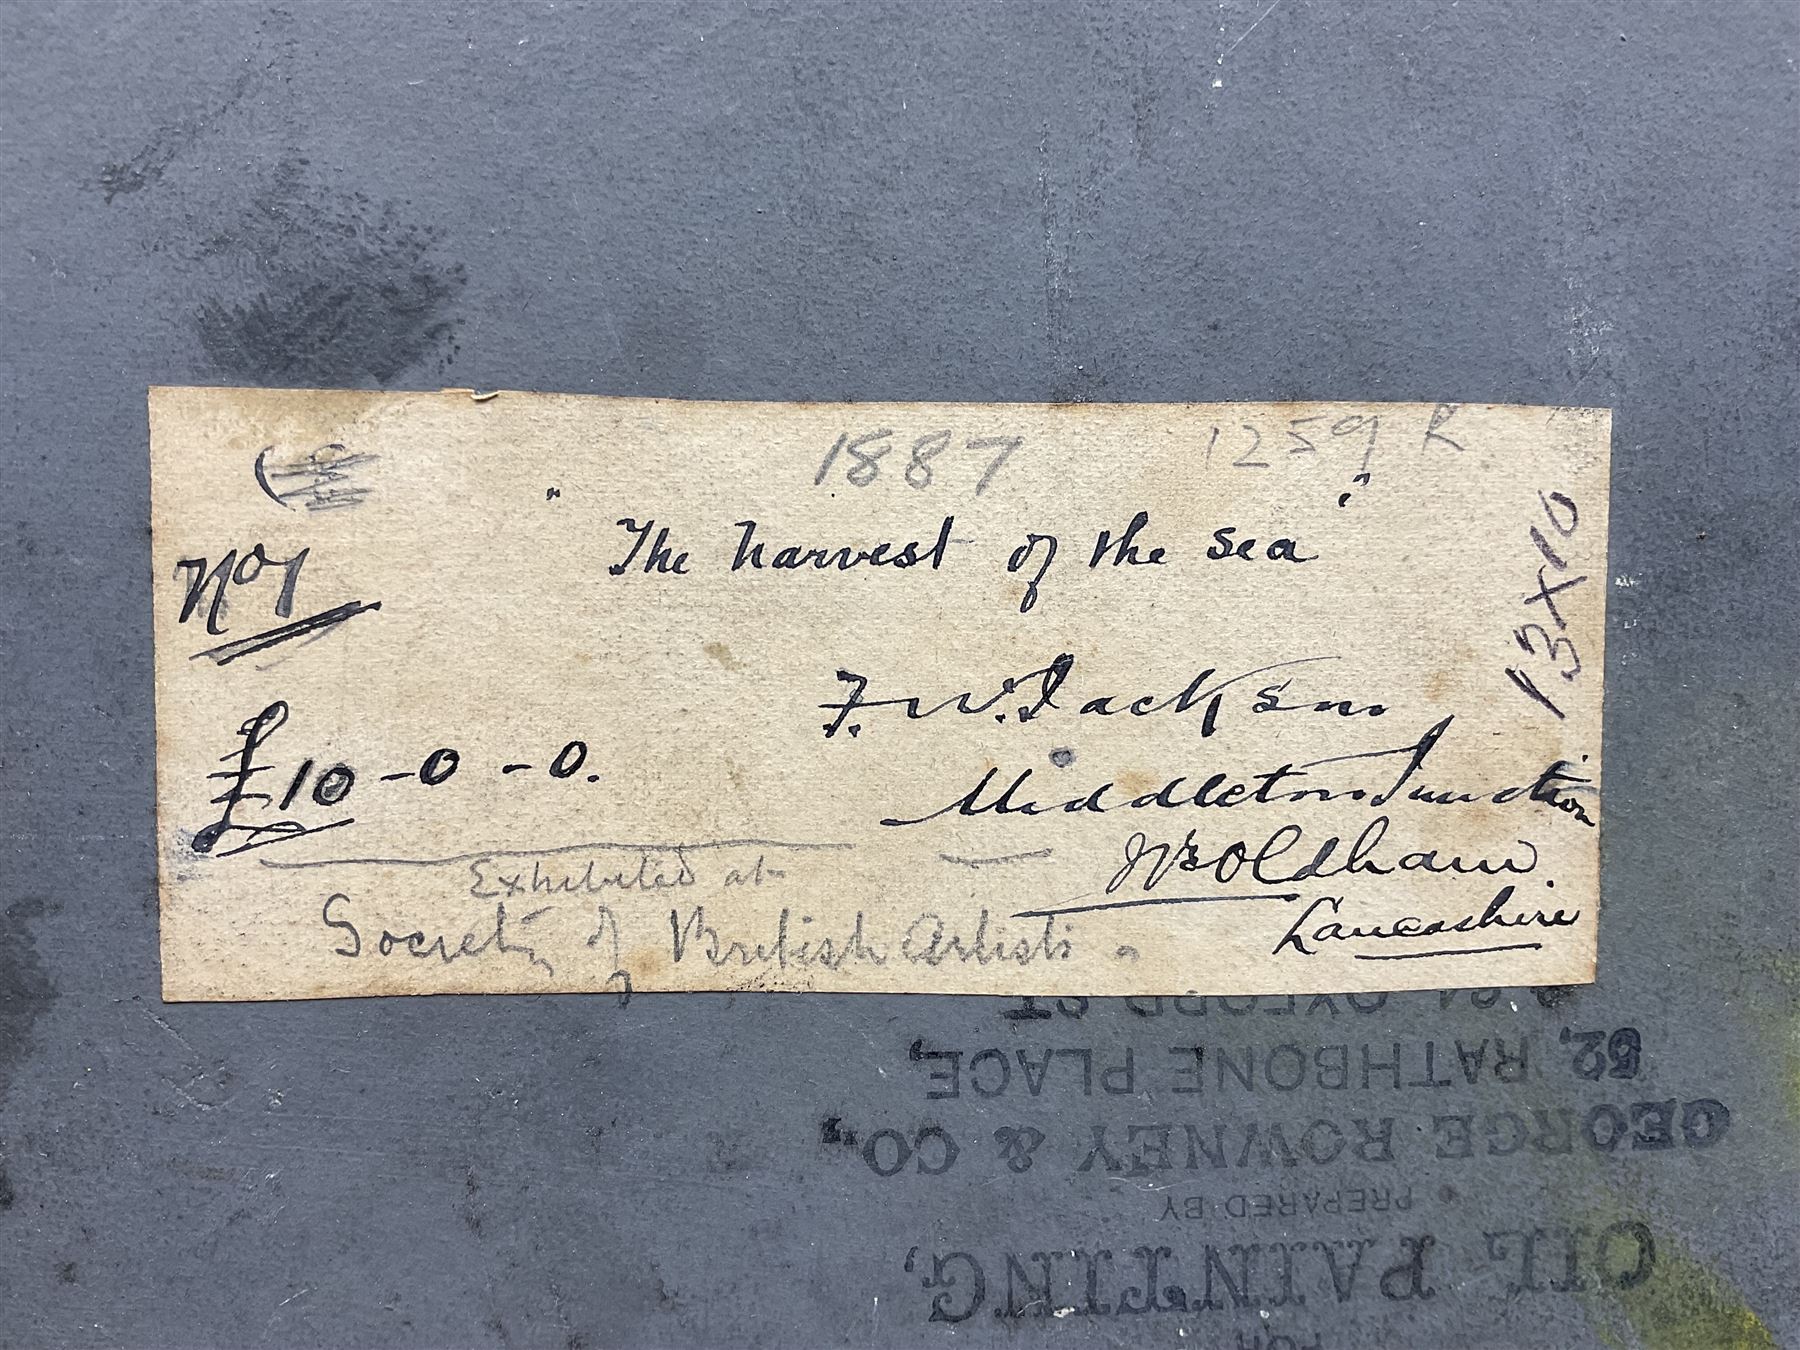 1887 1259 R
"The harvest of the sea"
No 1
13 x 10
F. W. Jackson
£10-0-0.
Middleton Junction
Nr Oldham.
Lancashire
Exhibited at
Society of British Artists
OXFORD ST
52, RATHBONE PLACE,
GEORGE ROWNEY & CO,
PREPARED BY
OIL PAINTING,
FOR